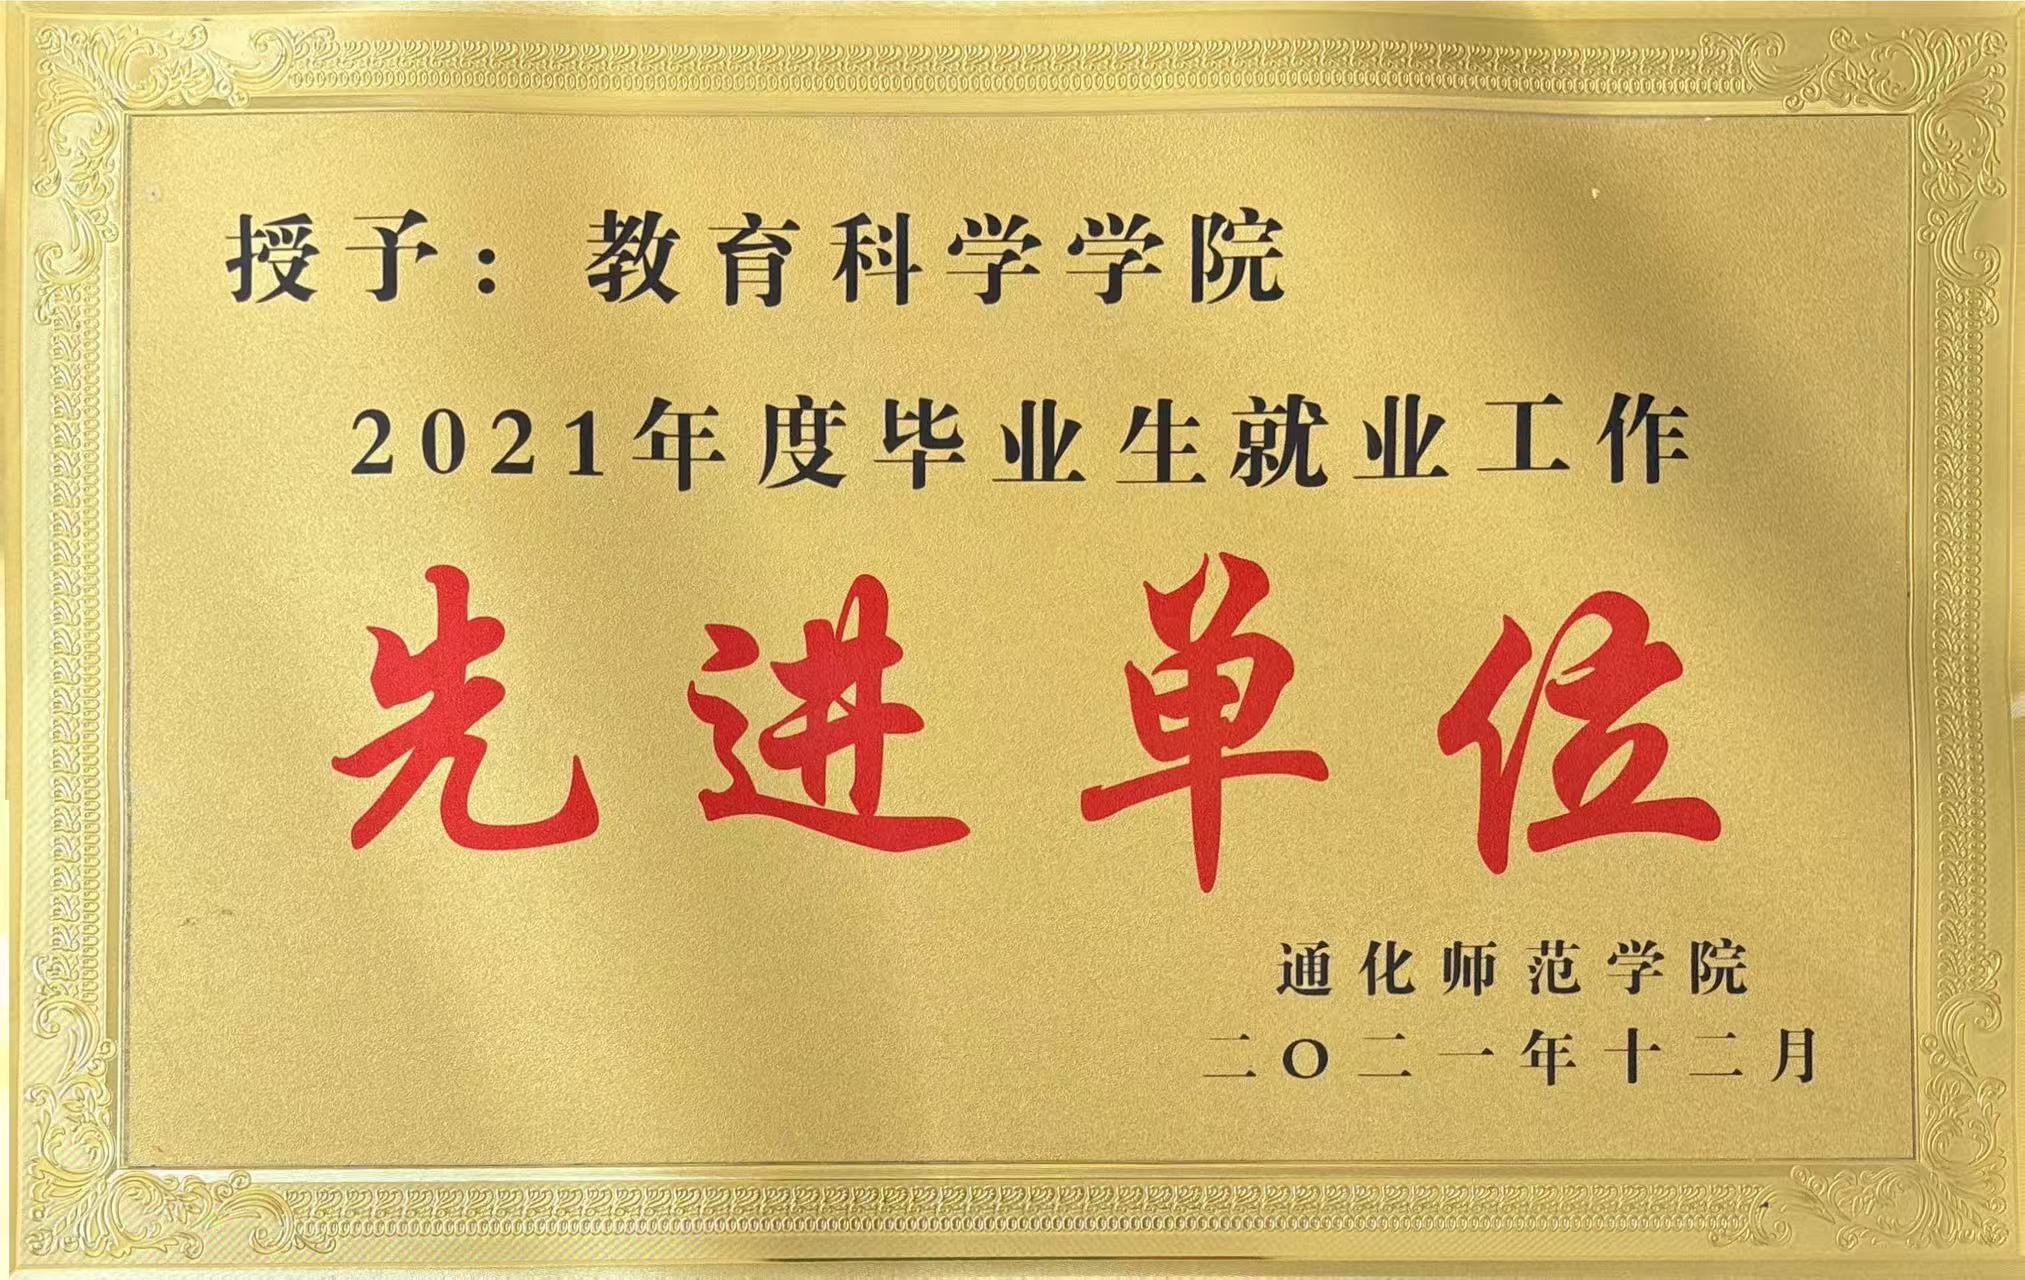 授予：教育科学学院
2021年度毕业生就业工作
先进单位
通化师范学院
二〇二一年十二月